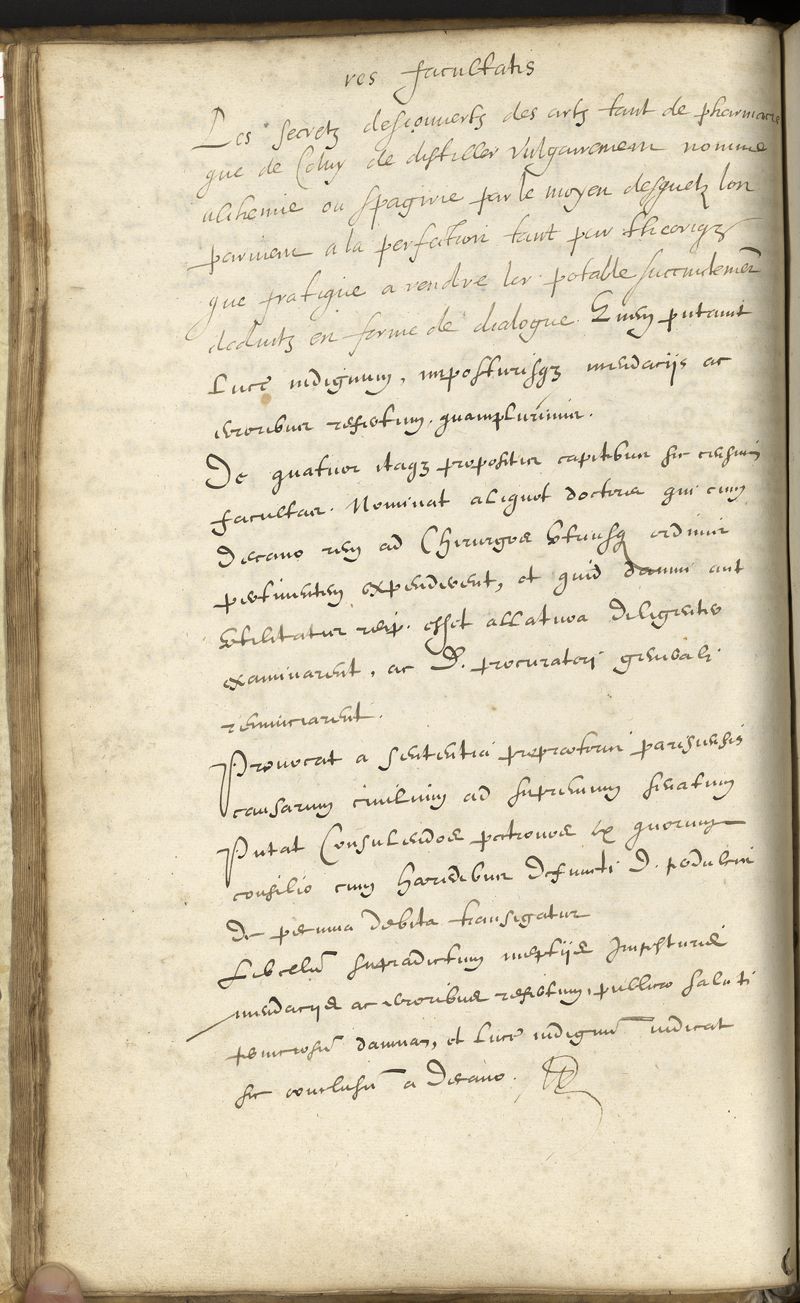 res facultatis
Les secretz descouvertz des artz tant de pharmacie
que de celuy de distiller vulgairement nomme
alchemie ou spagirie par le moyen desquelz lon
parvient a la perfection tant par theorique
que pratique a rendre lor potable succintement
deduitz en forme de dialogue. Quem putavit
luce indignum, imposturisqz mendaciis ac
erroribus refertum quamplurimis.
De quatuor itaqz propositis capitibus sic censuit
facultas. Nominat aliquot doctores qui cum
Decano rem ad Chirurgos utriusq ordinis
pertinentem expenderent, et quid damni aut
utilitatis reip. esset allatura diligenter
examinarent, ac D. procuratori generali
renunciarent.
Provocat a sententia praepraetoris parisiensis
causarum civilium ad supremum senatum
Putat Consulendos patronos ex quorum
consilio cum haeredibus defuncti D.
de pecunia debita transigatur
Libellũ supradictum ineptiis Imposturis
mendaciis ac erroribus refertum, publicae saluti
perniciosũ damnat, et luce indignũ iudicat
sic conclusũ a Decano.